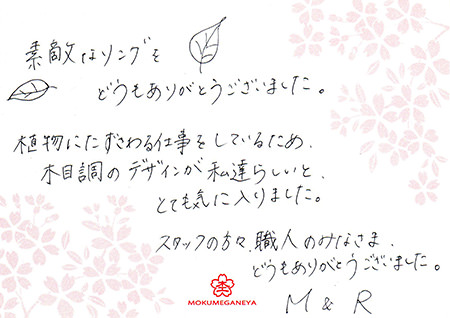 素敵なリングを
どうもありがとうございました。
植物にたずさわる仕事をしているため、
木目調のデザインが私達らしいと、
とても気に入りました。
スタッフの方々、職人のみなさま、
どうもありがとうございました。
MOKUMEGANEYA
M & R